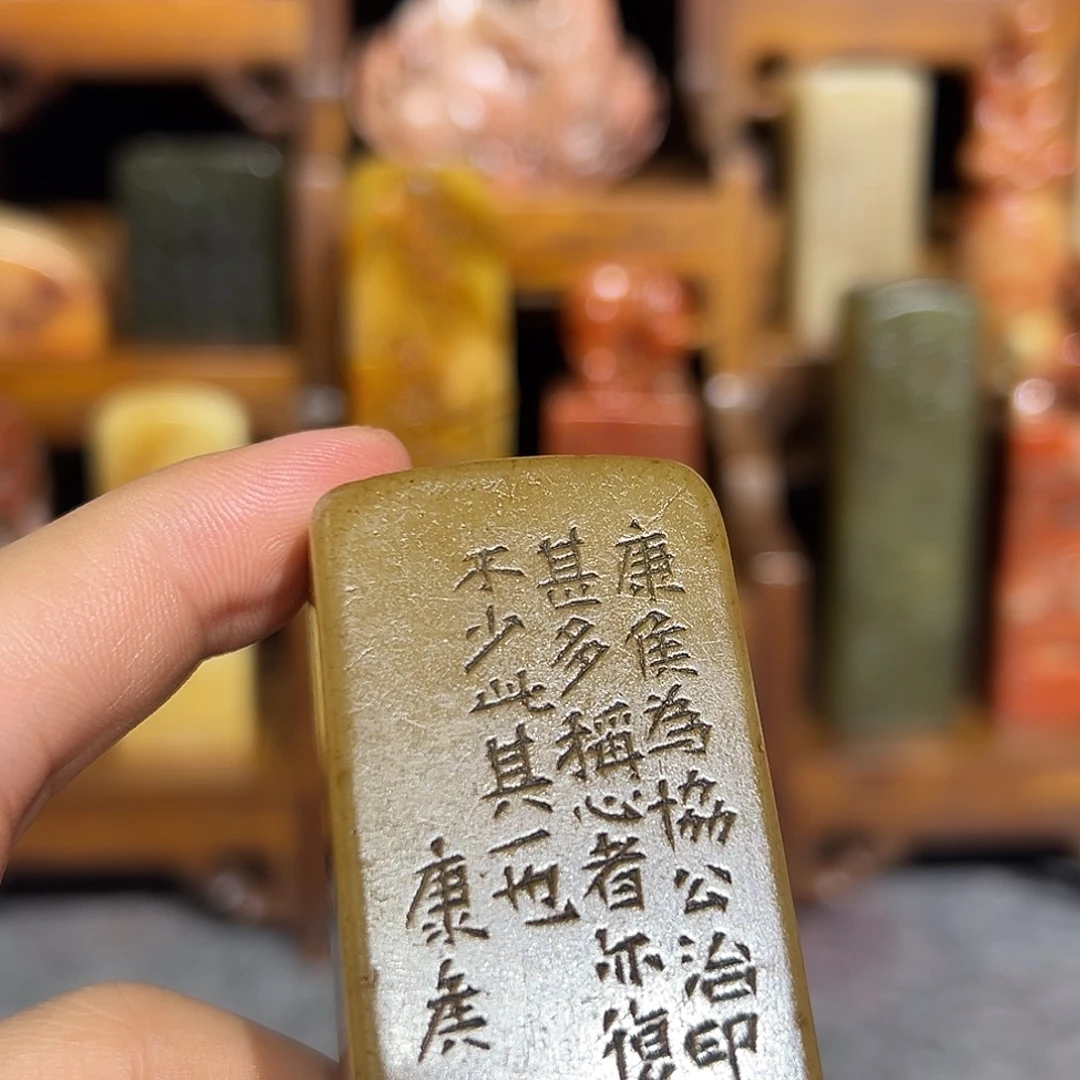 康侯為協公治印
甚多稱心者亦復
不少此其一也
康侯